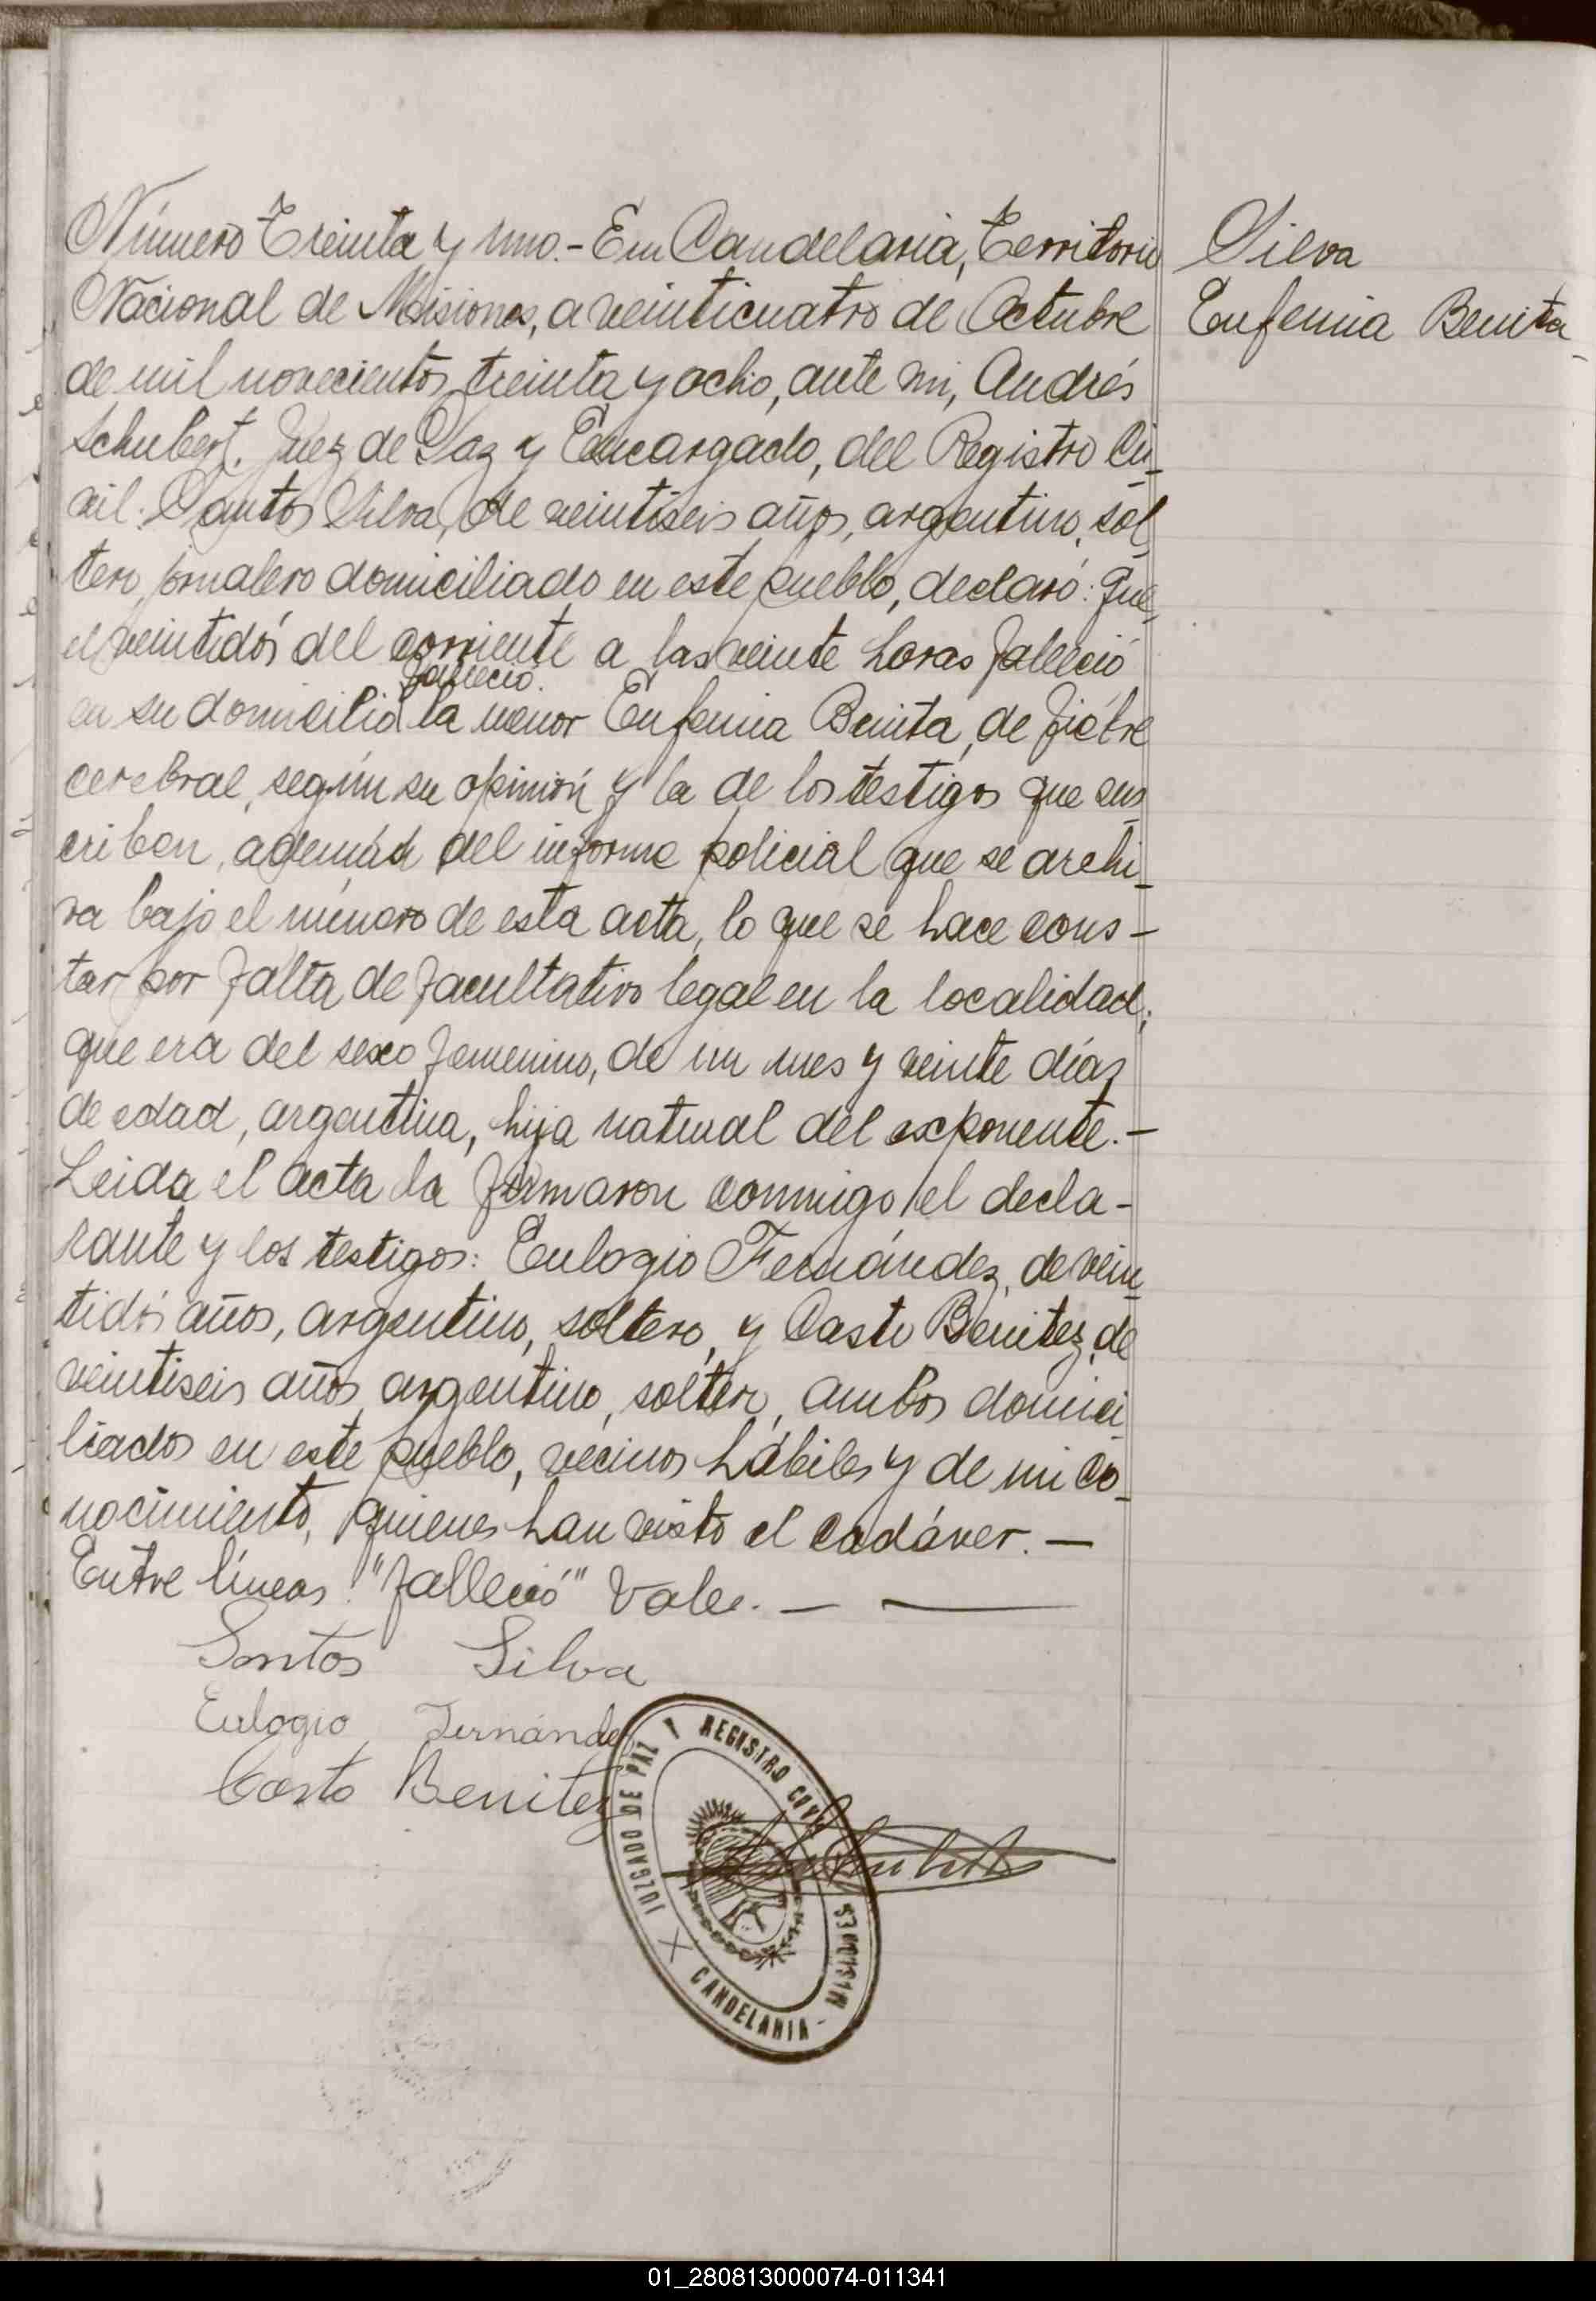 Número Treinta y uno.- En Candelaria, Territorio
Nacional de Misiones, a veinticuatro de Octubre
de mil novecientos treinta y ocho, ante mi, Andrés
Schubert, Juez de Paz y Encargado, del Registro Ci-
vil. Santos Silva, de veintiseis años, argentino, sol-
tero, jornalero domiciliado en este pueblo, declaró: Que,
el veintidós del corriente a las veinte horas falleció
falleció.
en su domicilio la menor Eufemia Benita, de fiebre
cerebral, según su opinión y la de los testigos que sus-
criben, además del informe policial que se archi-
va bajo el número de esta acta, lo que se hace cons-
tar por falta de facultativo legal en la localidad;
que era del sexo femenino, de un mes y veinte días
de edad, argentina, hija natural del exponente.-
Leida el acta la firmaron conmigo el decla-
rante y los testigos: Eulogio Fernández, de vein-
tidós años, argentino, soltero, y Casto Benitez, de
veintiseis años, argentino, soltero, ambos domici-
liados en este pueblo, vecinos hábiles y de mi co-
nocimiento, quienes han visto el cadáver.-
Entre líneas: "falleció" Vale.- -
Santos Silva
Eulogio Fernández
Casto Benitez
Silva
Eufemia Benita
JUZGADO DE PAZ Y REGISTRO CIVIL
CANDELARIA - MISIONES
01_280813000074-011341